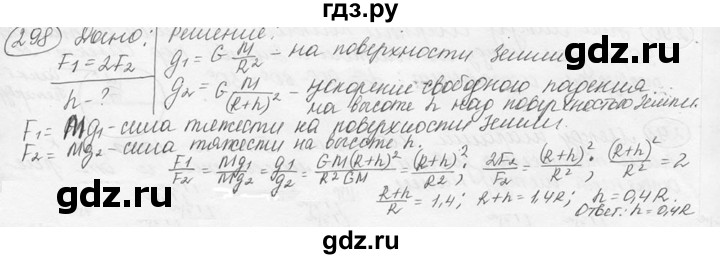 гдз.ру
298 Дано: Решение:
F₁=2F₂ g₁ = G M/R² - на поверхности Земли
h - ? g₂ = G M/(R+h)² - ускорение свободного падения
на высоте h над поверхностью Земли.
F₁ = Mg₁ - сила тяжести на поверхности Земли.
F₂ = Mg₂ - сила тяжести на высоте h.
F₁/F₂ = Mg₁/Mg₂ = g₁/g₂ = GM(R+h)²/R²GM = (R+h)²/R²; 2F₂/F₂ = (R+h)²/R²; (R+h)²/R² = 2
(R+h)/R = 1,4; R+h = 1,4R; h = 0,4R.
Ответ: h = 0,4R
gdz.ru gdz.ru gdz.ru